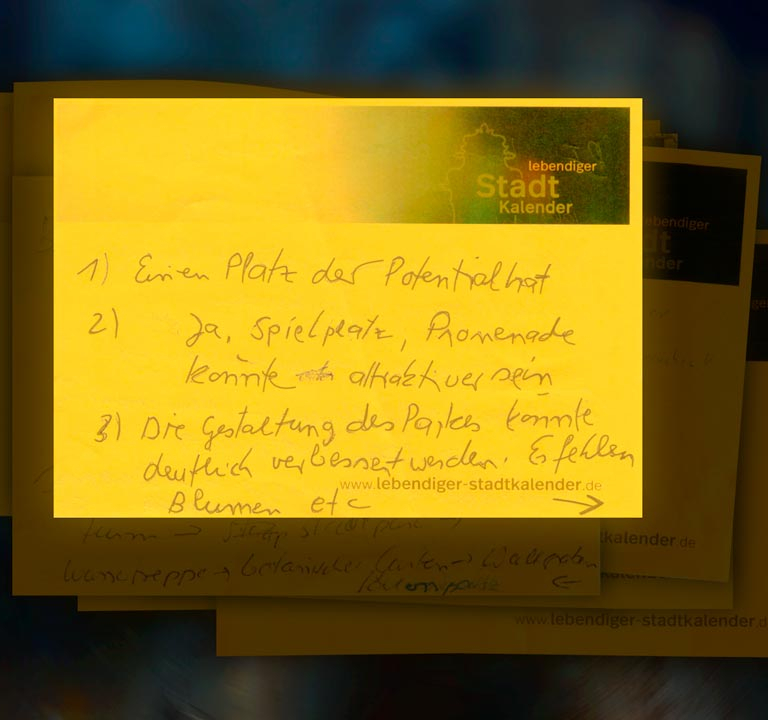 lebendiger
Stadt
Kalender
1) Einen Platz der Potential hat
2) Ja, Spielplatz, Promenade
könnte attraktiver sein
3) Die Gestaltung des Parkes könnte
deutlich verbessert werden. Es fehlen
www.lebendiger-stadtkalender.de
Blumen etc →
ebendiger
dt
nder
kalender.de
→ botanischer Garten → Wallgraben
←
www.lebendiger-stadtkalender.d